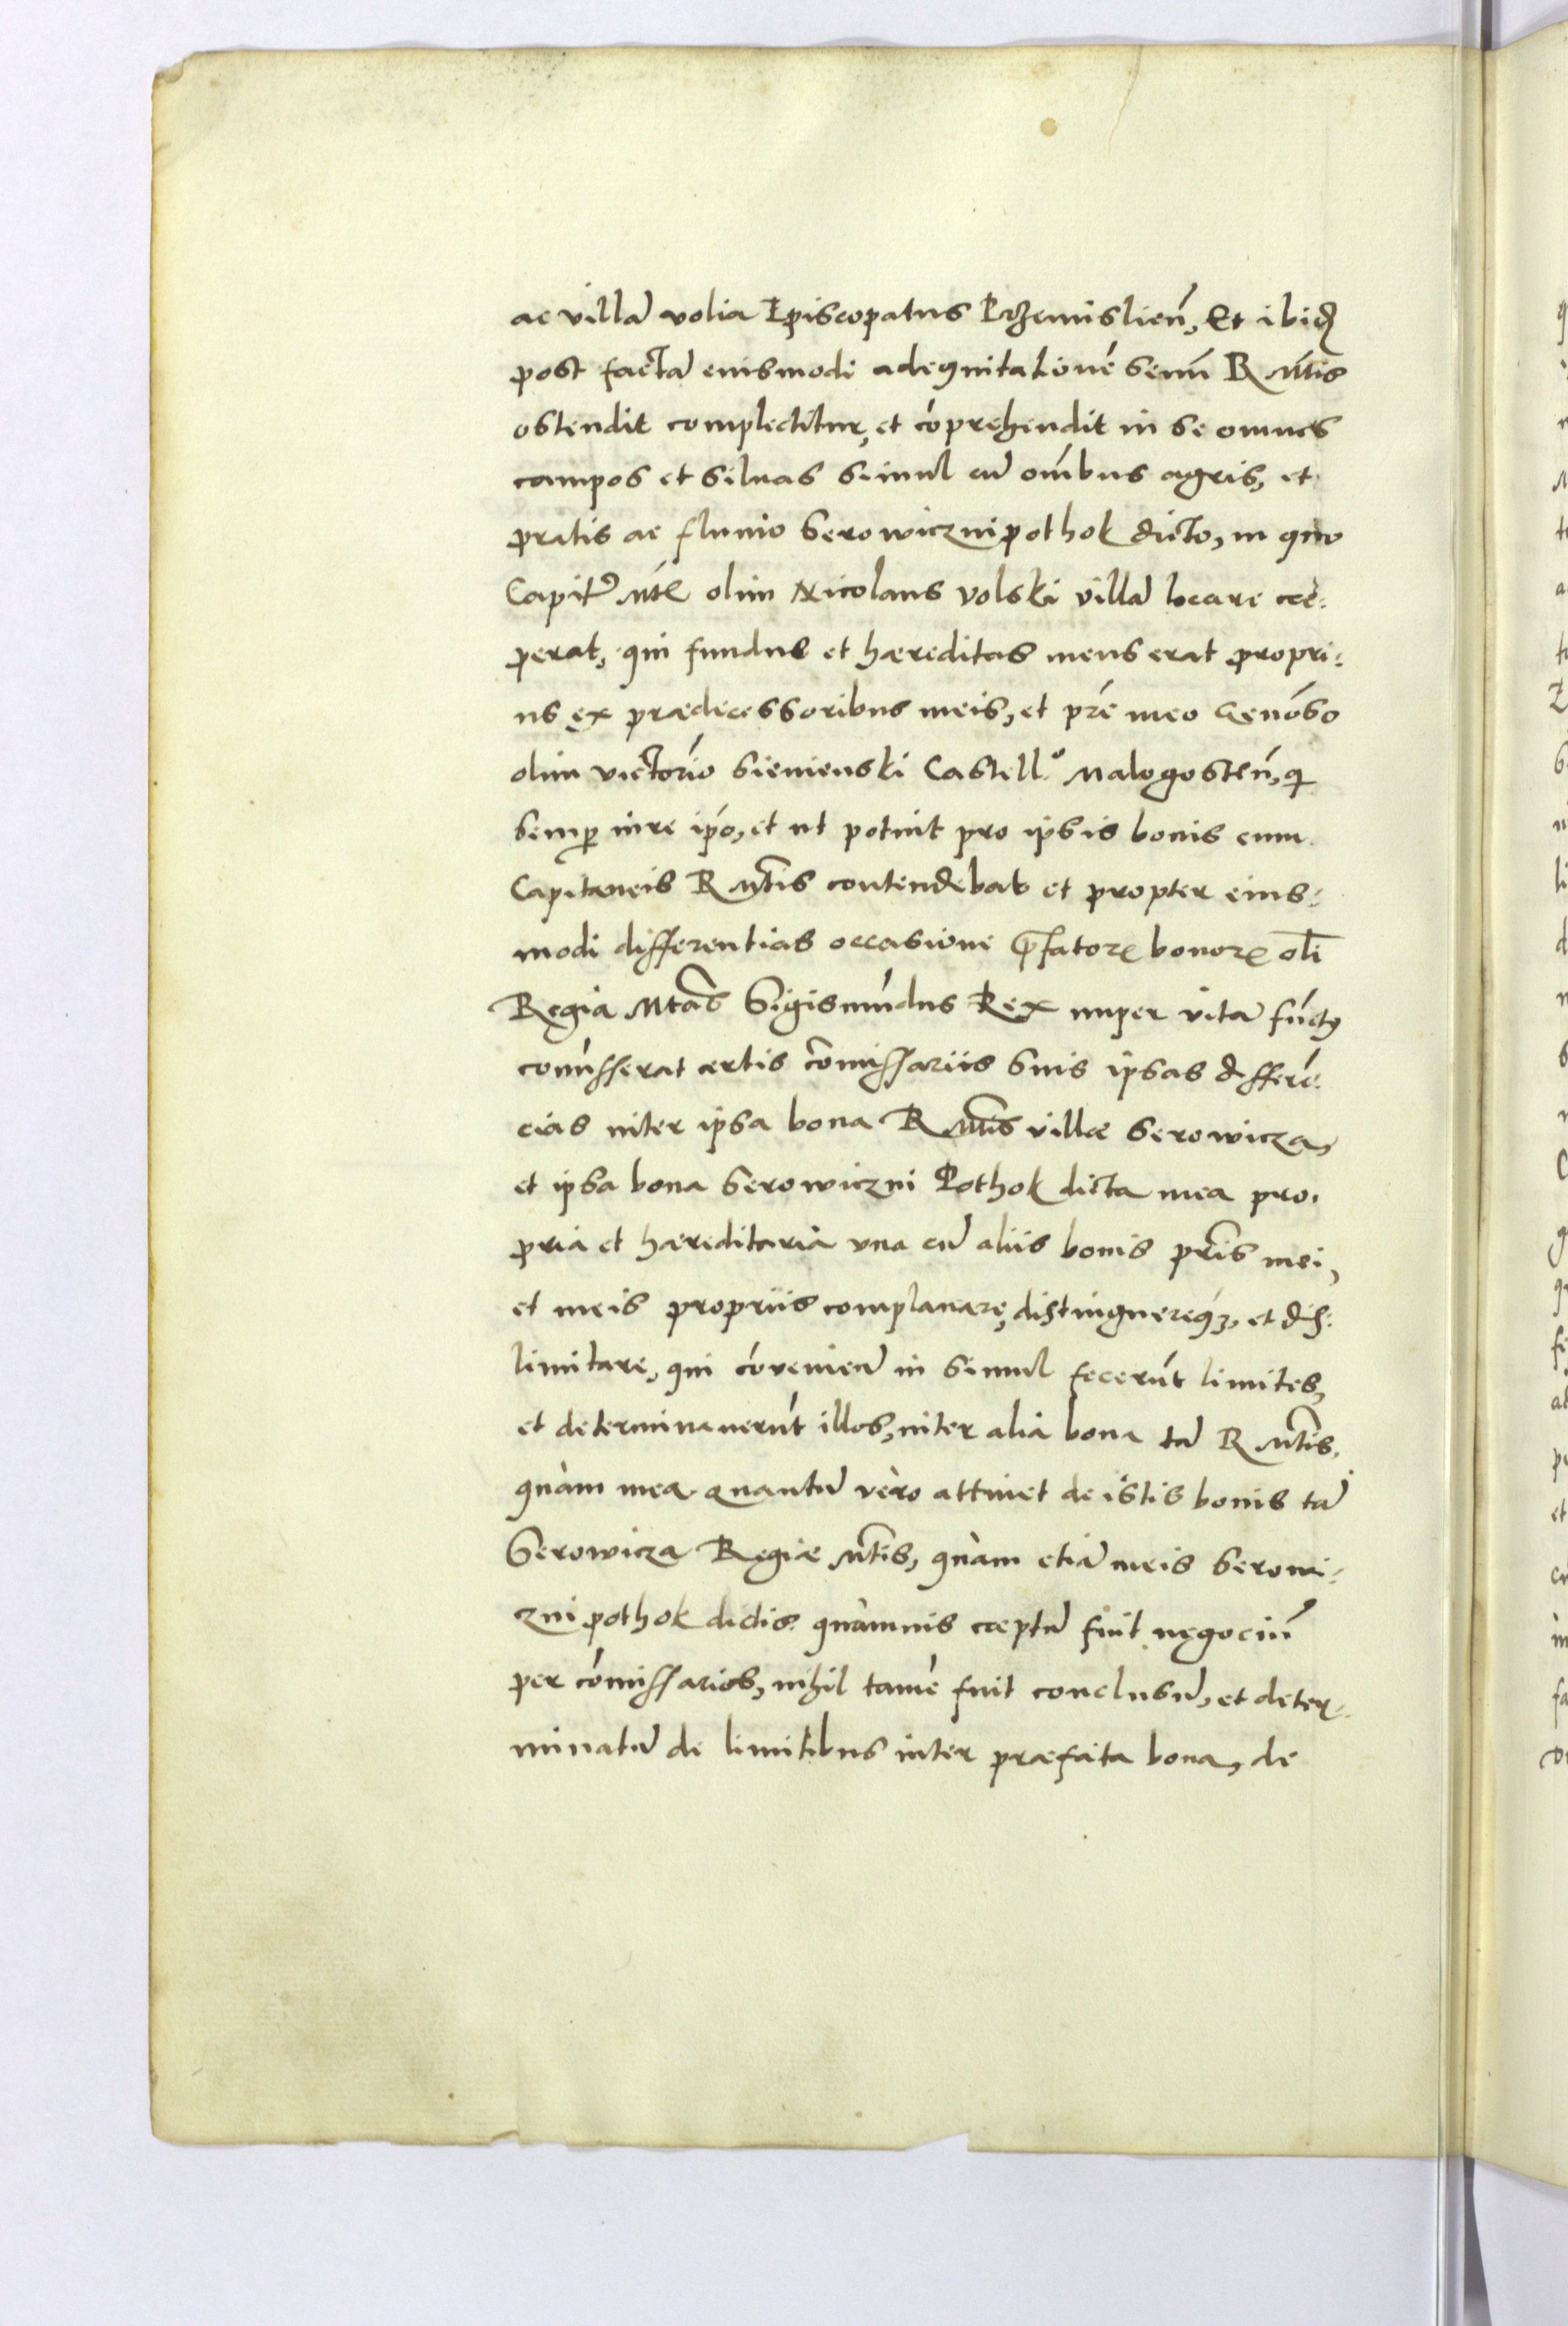 ac villā volia Episcopatus Przemislień, Et ibidē
post factā eiusmodi adequitationē Senū R Mtis
ostendit complectitur, et cōprehendit in se omnes
campos et siluas simul cū omībus agris, et
pratis ac fluuio Serowiczni pothok dicto, in quo
olim Nicolaus Volski villā locare cœ:
perat, qui fundus et hæreditas meus erat propri:
us ex prædecessoribus meis, et pr̃e meo Genōso
olim Victorīo Sienienski Castell.º Malogosteń, q̃
semp̱ iure ip̃o, et ut potuit pro ipsis bonis cum
Capitaneis R Mtis contendebat et propter eius:
modi differentias occasione p̃fatorꝝ bonorꝝ olī
Regia Mtas Sigismūdus Rex nuper vita fūctꝰ
comīsserat certis cōmissariis suis ipsas differē
cias inter ipsa bona R Mtis villæ Serowicza,
et ipsa bona Serowiczni Pothok dicta mea pro:
pria et hæreditaria vna cū aliis bonis pr̃is mei,
et meis propriis complanare, distinguereqꝫ, et dis:
limitare, qui cōveniendū in simul fecerūt limites,
et determinauerūt illos, inter alia bona tā R Mtis.
quàm mea. Quantū vero attinet de istis bonis tā
Serowicza Regiæ Mtis, quàm etiā meis Serowi:
zni pothok dictis. quàmuis cœptū fuit negociū
per cōmissarios, nihil tamē fuit conclusū, et deter:
minatū de limitibus inter præfata bona, de